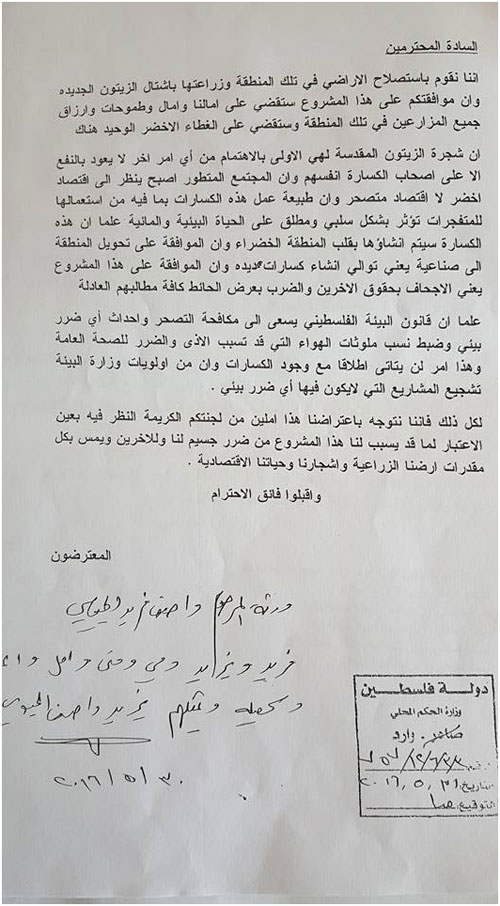 السادة المحترمين
اننا نقوم باستصلاح الاراضي في تلك المنطقة وزراعتها باشتال الزيتون الجديده
وان موافقتكم على هذا المشروع ستقضي على امالنا وامال وطموحات وارزاق
جميع المزارعين في تلك المنطقة وستقضي على الغطاء الاخضر الوحيد هناك
ان شجرة الزيتون المقدسة لهي الاولى بالاهتمام من أي امر اخر لا يعود بالنفع
الا على اصحاب الكسارة انفسهم وان المجتمع المتطور اصبح ينظر الى اقتصاد
اخضر لا اقتصاد متصحر وان طبيعة عمل هذه الكسارات بما فيه من استعمالها
للمتفجرات تؤثر بشكل سلبي ومطلق على الحياة البيئية والمائية علما ان هذه
الكسارة سيتم انشاؤها بقلب المنطقة الخضراء وان الموافقة على تحويل المنطقة
الى صناعية يعني توالي انشاء كسارات ديده وان الموافقة على هذا المشروع
يعني الاجحاف بحقوق الاخرين والضرب بعرض الحائط كافة مطالبهم العادلة
علما ان قانون البيئة الفلسطيني يسعى الى مكافحة التصحر واحداث أي ضرر
بيئي وضبط نسب ملوثات الهواء التي قد تسبب الاذى والضرر للصحة العامة
وهذا امر لن يتاتى اطلاقا مع وجود الكسارات وان من اولويات وزارة البيئة
تشجيع المشاريع التي لايكون فيها أي ضرر بيئي .
لكل ذلك فاننا نتوجه باعتراضنا هذا املين من لجنتكم الكريمة النظر فيه بعين
الاعتبار لما قد يسبب لنا هذا المشروع من ضرر جسيم لنا وللاخرين ويمس بكل
مقدرات ارضنا الزراعية واشجارنا وحياتنا الاقتصادية .
واقبلوا فائق الاحترام
المعترضون
ورثة المرحوم واصف فريد الجيوسي
فريد ويزيد ومي ومنى وامل
ويمثلهم يزيد واصف الجيوسي
٢٠١٦/٥/٣٠
دولة فلسطين
وزارة الحكم المحلي
صادر، وارد
التاريخ: ٢٠١٦،٥،٣١
التوقيع: